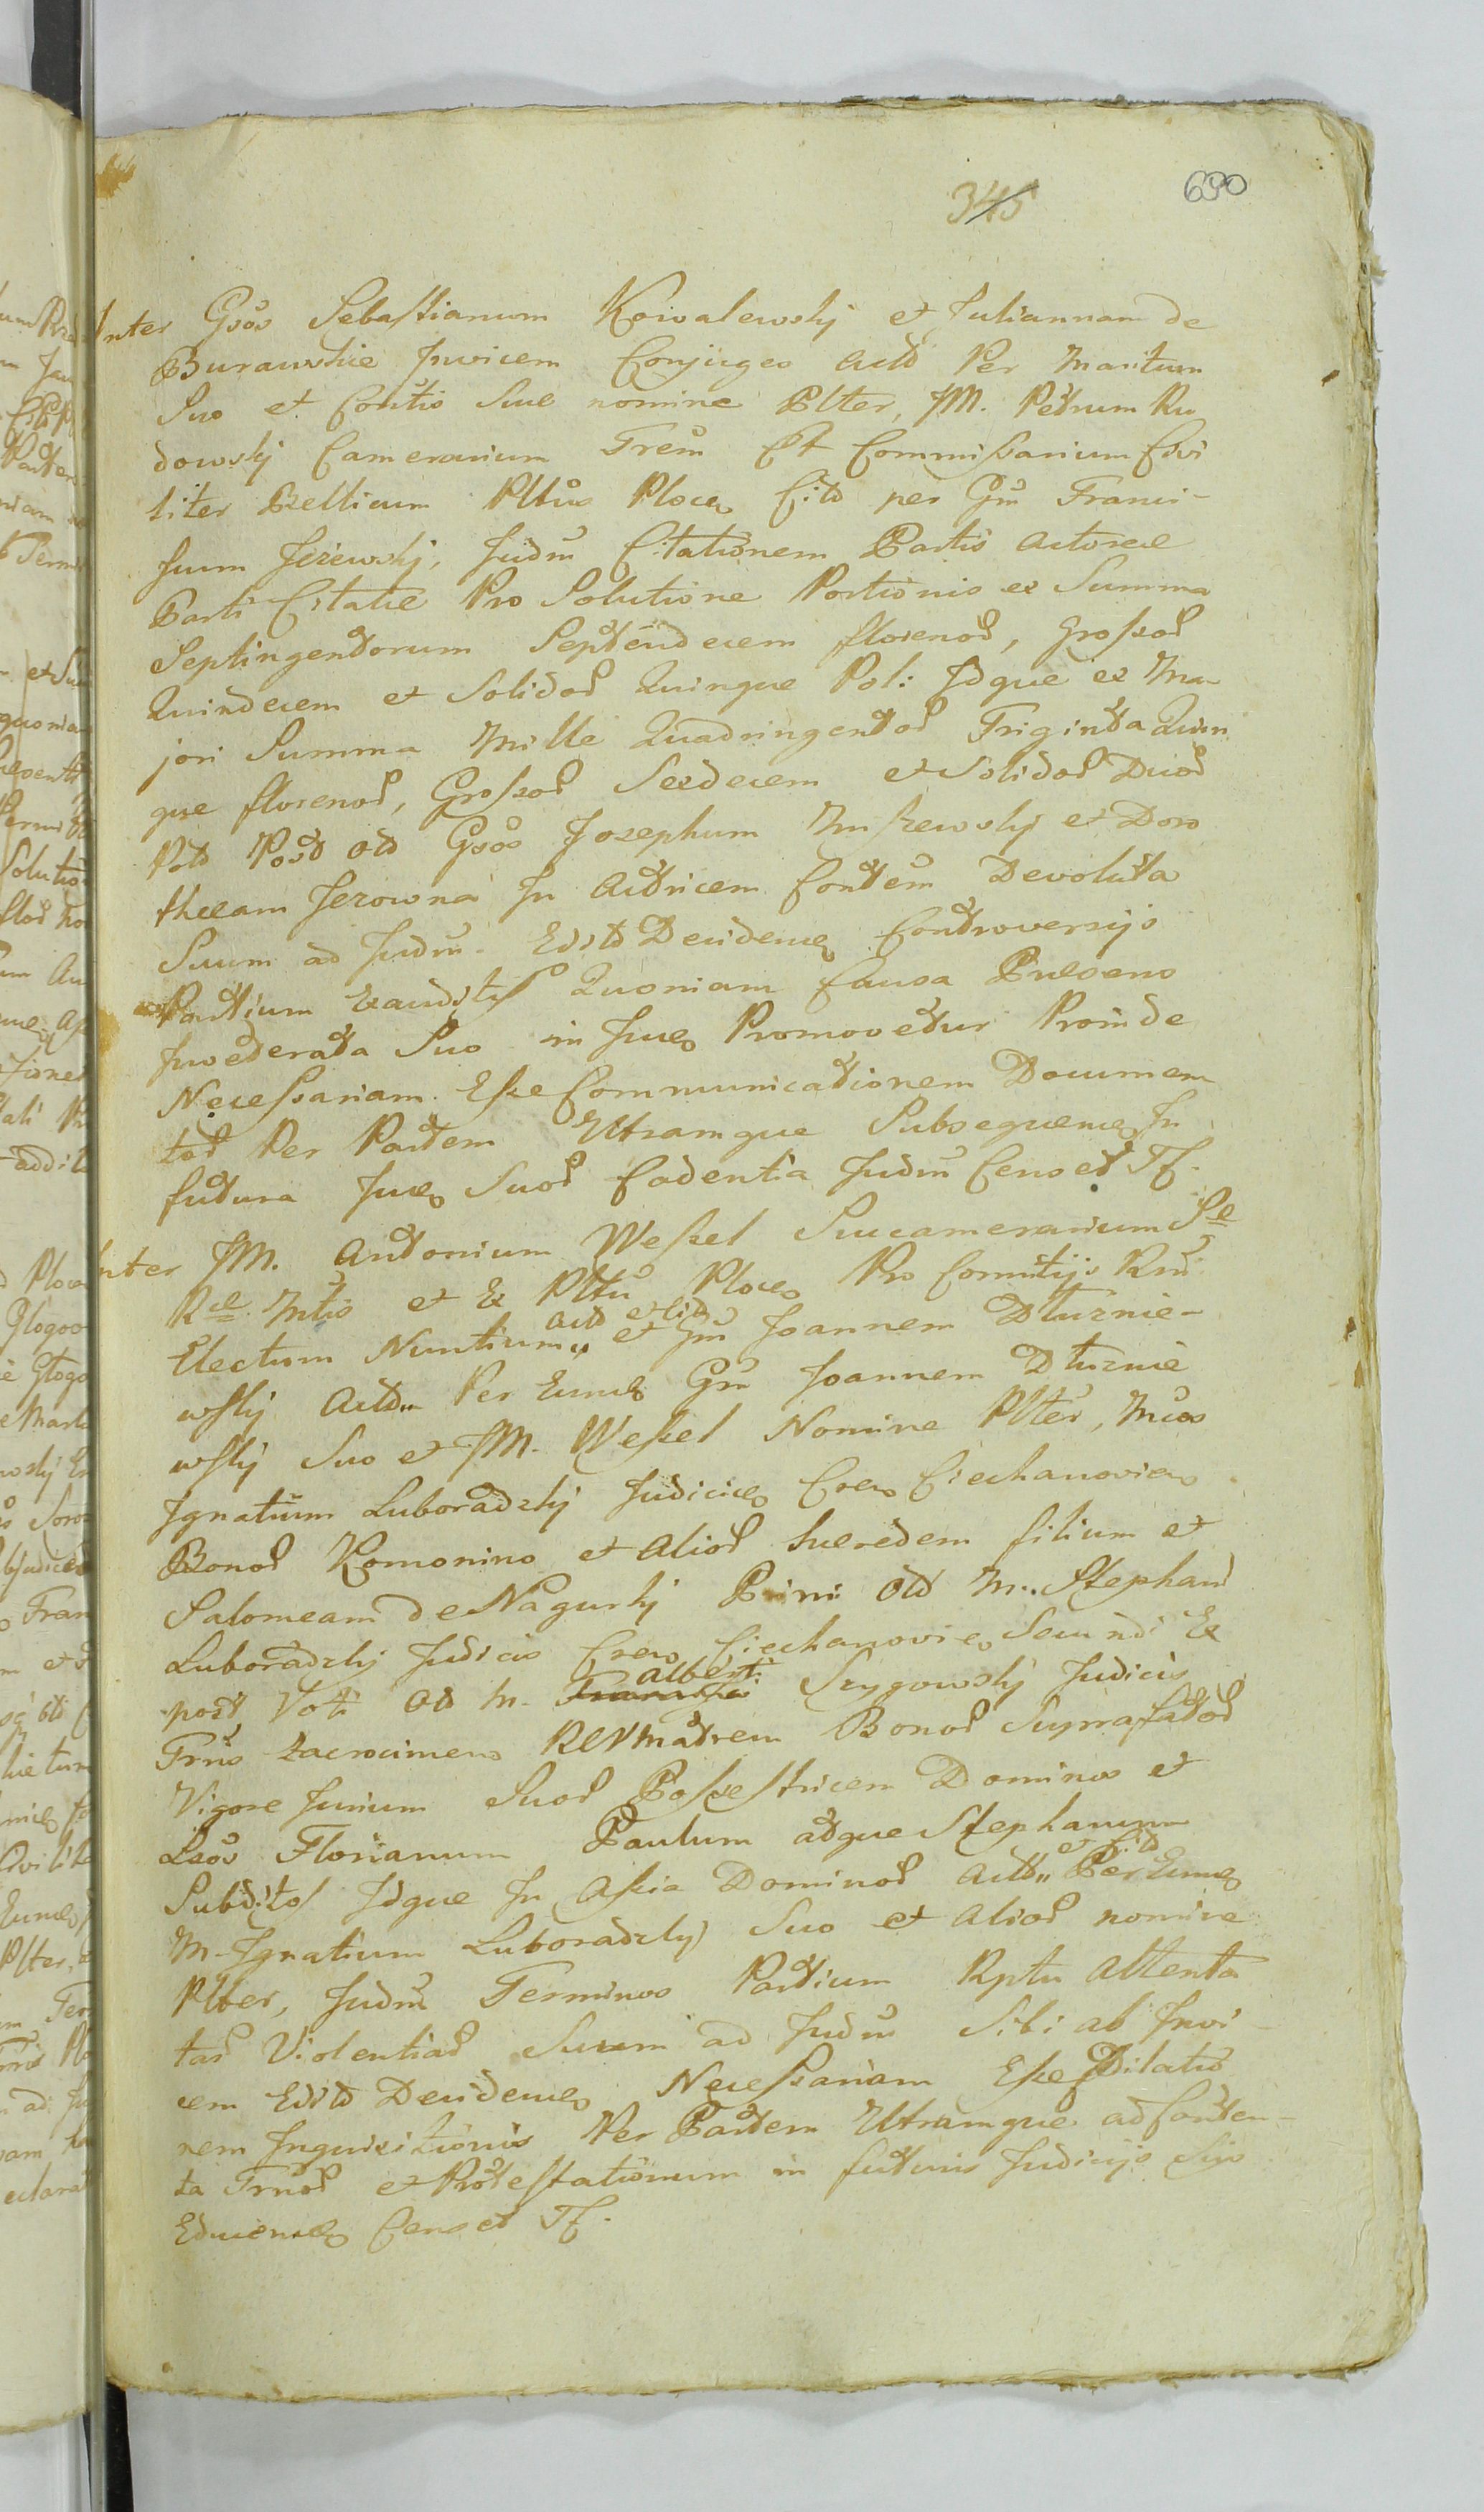 345 690
Inter Gsos Sebastianum Kowalewsky et Juliannam de
Burawskie Invicem Conjuges Actd Per Maritum
Suo et Contis Sue nomine Plter, JM. Petrum Ru
dowsky Camerarium Trem Et Commissarium Civi
liter Bellicum Pltus Ploce Citd per Gm Franci-
scum Jezewsky, Judm Citationem Partis Actoree
Parti Citatae Pro Solutione Portionis ex Summa
Septingentorum Septendecem florenor, Grossor
Quindecem et Solidor Quinque Pol: Idque ex Ma-
jori Summa Mille Quadringentor Triginta Quin
que florenor, Grossor Sexdecem et Solidor Duor
Ptd Post Otd Gsos Josephum et Doro
theam Jezowna In Actricem Contem Devoluta
Suum ad Judm. Edstd Decidene Controversijs
Partium Exauditis Quoniam Causa Praesens
Invederata Suo in Jure Promovetur Proinde
Necessariam Esse Communicationem Documen
tor Per Partem Utramque Subsequene In
futura Jure Suor Cadentia Judm Censet Tf.
Inter JM. Antonium Wessel Succamerarium Se
Rae Mtis et Ex Pltu Ploce Pro Comitijs Rni
Electum Nuntium„ Actd et Citd et Gm Joannem Dluznie-
wsky Actd„ Per Eunde Gm Joannem Dluznie
wsky Suo et JM. Wessel Nomine Plter, Mcos
Ignatium Luboradzky Judicice Cren Ciechanovien
Bonor Komonino et Alior haeredem filium et
Salomeam de Nagurky Primi Otd M. Stephani
Luboradzky Judicis Cren Ciechanovien Secundi Ex
post Voti Od M. Francisci Alberti Szygowsky Judicis
Trris Zacrocimens Matrem Bonor Suprafator
Vigore Jurium Suor Possestricem Dominos et
Lsos Florianum Paulum atque Stephanum
Subditos Idque In Assia Dominor Actd„ et Citd Per Eunde
M. Ignatium Luboradzky Suo et Alior nomine
Plter, Judm Terminos Partium Rptu Attenta
tar Violentiar Suum ad Judm Sibi ab Invi-
cem Edstd Decidene Necessariam Esse Dilatio
nem Inquisitionis Per Partem Utramque ad Conten-
ta Trnor et Protestationum in futuris Judicijs Sijs
Educense Censet Tf.